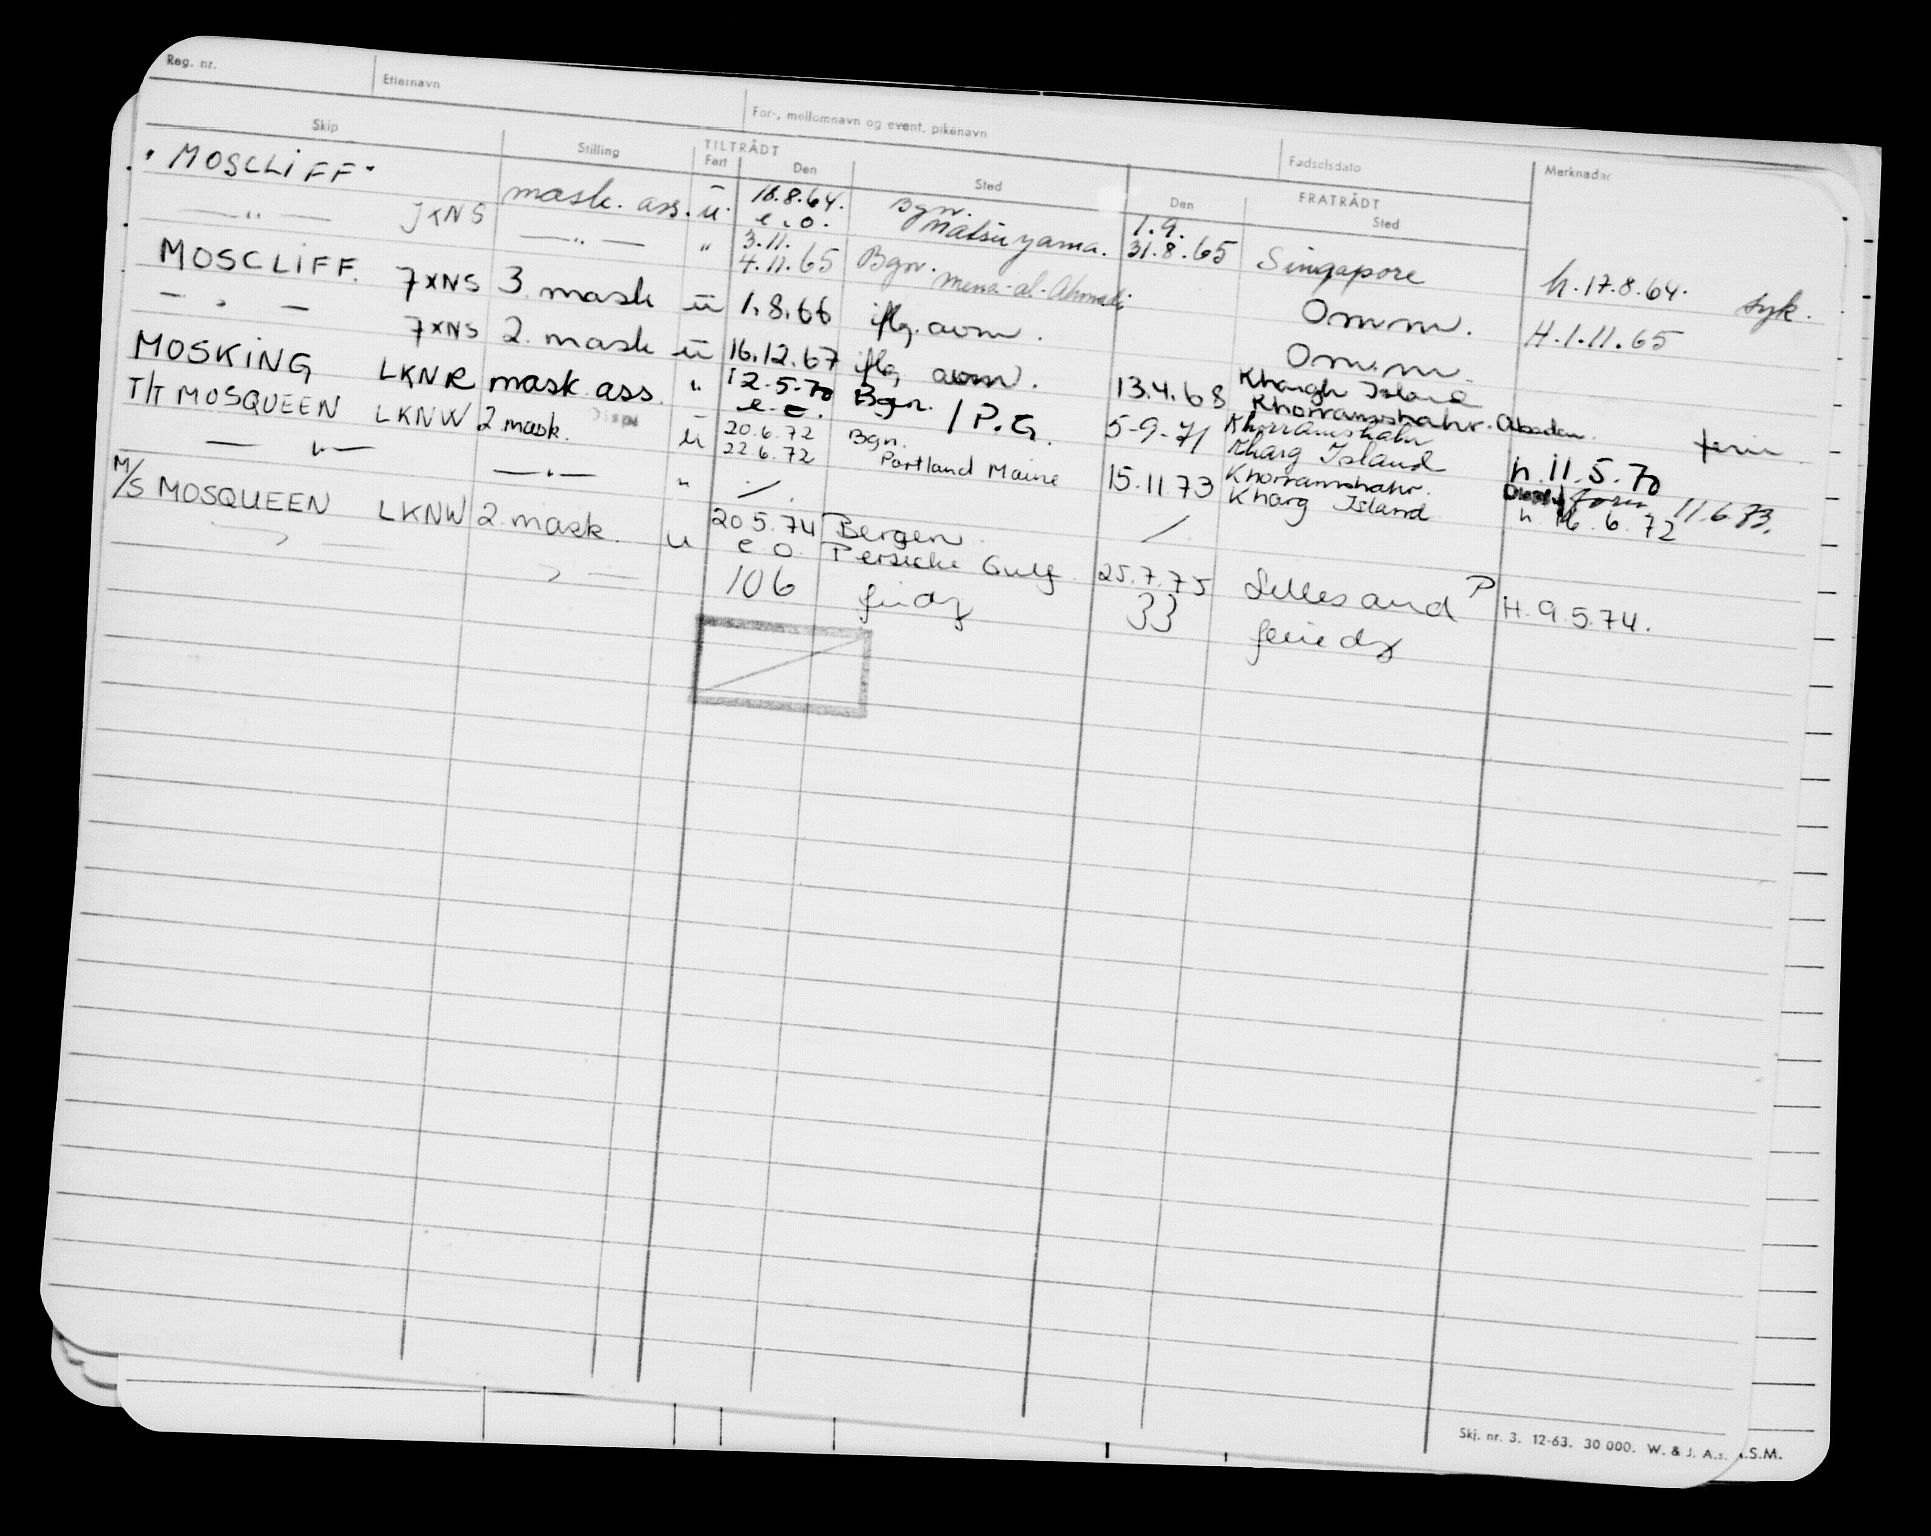 Reg. nr. Etternavn For-, mellomnavn og event. pikenavn Fødselsdato Merknader
Skip Stilling TILTRÅDT FRATRÅDT
Fart Den Sted Den Sted
"MOSCLIFF" JXNS mask. ass. u. 16.8.64. Bgn. 1.9. Singapore h. 17.8.64. syk.
e.o. Matsuyama. 31.8.65
—"— —"— " 3.11. Bgn. Omm. H.1.11.65
4.11.65 Mena-al-Ahmadi
MOSCLIFF. 7XNS 3. mask u 1.8.66 iflg. aom. Omm.
— " — 7XNS 2. mask u 16.12.67 iflg. aom. 13.4.68 Khargh Island
Khorramshahr. Abadan. ferie
MOSKING LKNR mask. ass. " 12-5-70 Bgn. / P.G. 5-9-71 Khorramshahr h. 11.5.70
e.o. Kharg Island
T/T MOSQUEEN LKNW 2 mask. Disp u 20.6.72 Bgn. 15.11.73 Khorramshahr. 11.6.73.
22.6.72 Portland Maine Kharg Island h 16.6.72
— " — — " — " /. /
M/S MOSQUEEN LKNW 2. mask. u 20.5.74 Bergen. 25.7.75 Lillesand P H. 9.5.74.
e.o. Persiske Gulf.
106 33
Skj. nr. 3. 12-63. 30 000. W. & J. A.s. A.S.M.